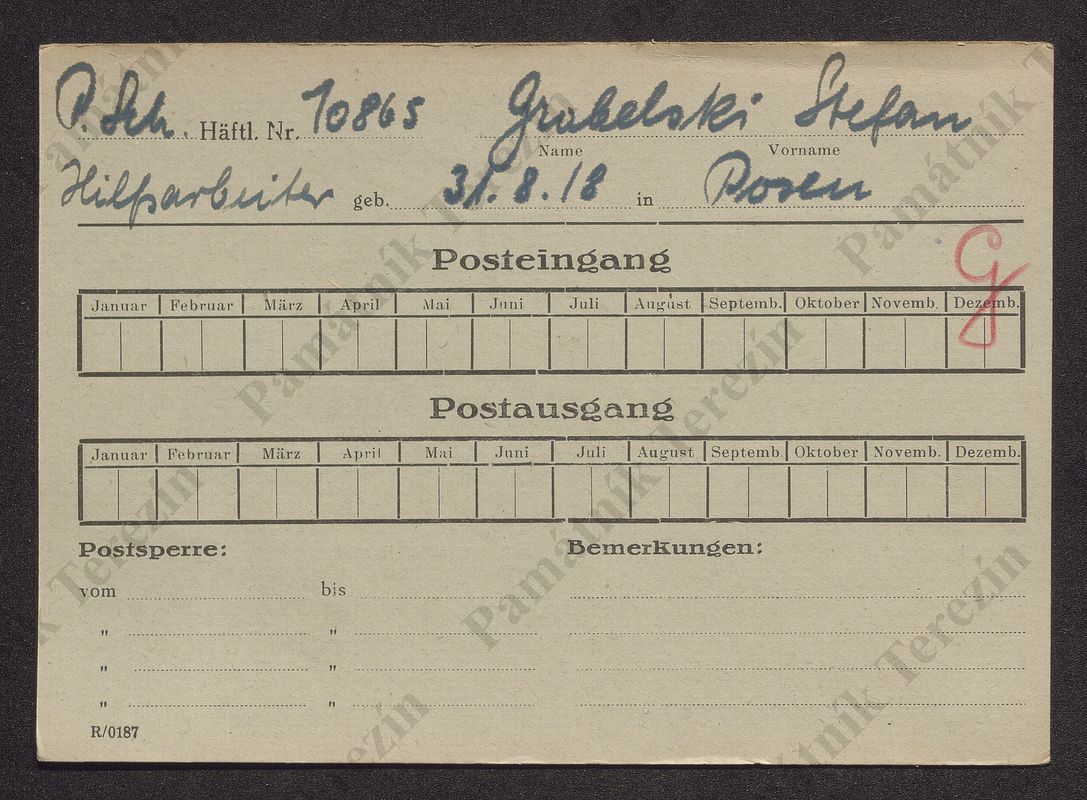 P. Sch. Häftl. Nr. 10865 Grabelski Stefan
Name Vorname
Hilfsarbeiter geb. 31.8.18 in Posen
Posteingang
G
Januar Februar März April Mai Juni Juli August Septemb. Oktober Novemb. Dezemb.
Postausgang
Januar Februar März April Mai Juni Juli August Septemb. Oktober Novemb. Dezemb.
Postsperre: Bemerkungen:
vom bis
" "
" "
" "
R/0187
Památník Terezín